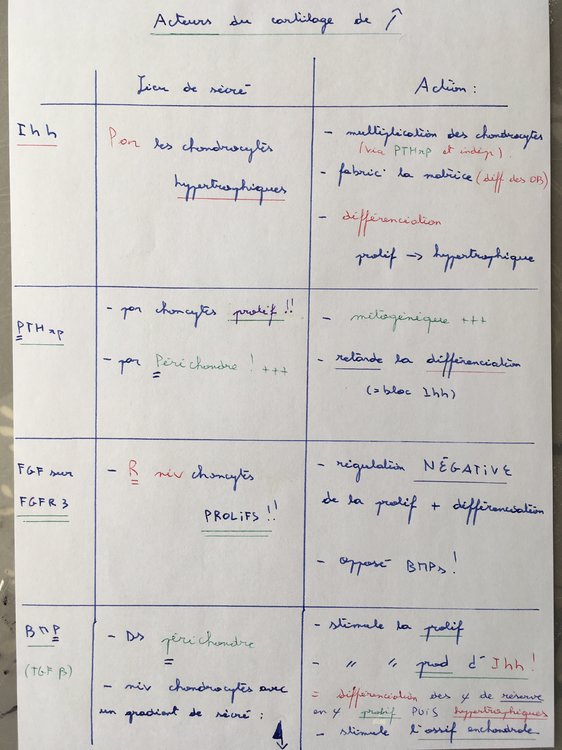 Acteurs du cartilage de ↑
Lieu de sécré
Action :
Ihh
Par les chondrocytes
hypertrophiques
- multiplication des chondrocytes
(via PTHrp et indép).
- fabric° la matrice (diff des OB)
- différenciation
prolif → hypertrophique
PTHrp
- par choncytes prolif !!
- par Périchondre ! +++
- mitogénique +++
- retarde la différenciation
(= bloc Ihh)
FGF sur
FGFR3
- R niv choncytes
PROLIFS !!
- régulation NÉGATIVE
de la prolif + différenciation
- opposé BMPs !
BMP
(TGF β)
- Ds périchondre
- niv chondrocytes avec
un gradient de sécré :
- stimule la prolif
- " " prod d' Ihh !
= différenciation des 4 de réserve
en 4 prolif PUIS hypertrophiques
- stimule l'ossif enchondrale